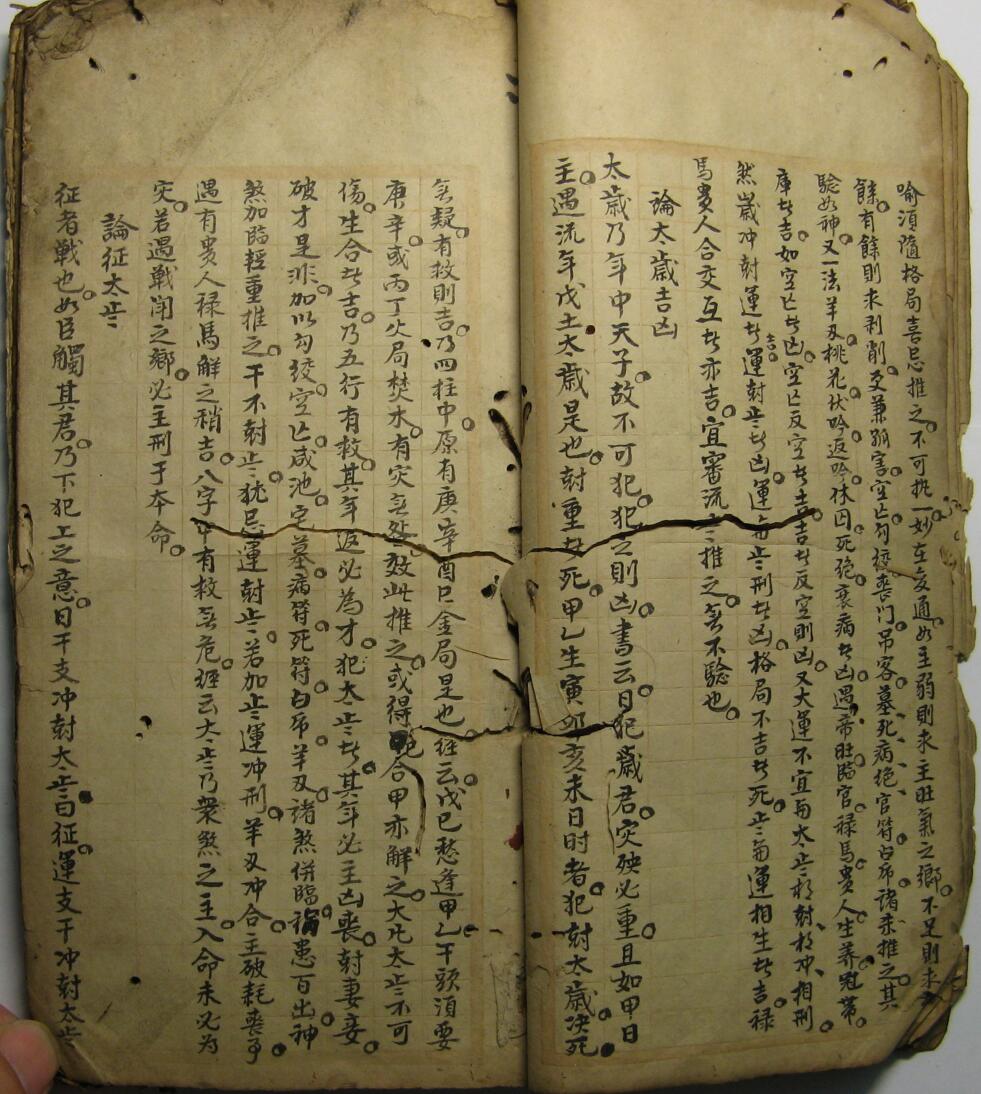 喻須隨格局喜忌推之。不可執一妙在变通如主弱則求主旺氣之鄉。不足則求
餘。有餘則求剥削。更兼孤害空亡勾絞喪门吊客。墓死病绝官符白帛諸来推之。其
驗如神。又一法羊刃桃花伏吟返吟。休囚死绝。衰病者凶。遇帝旺臨官。禄馬貴人生養冠帶。
庫者吉。如空亡者凶。空亡反空者吉。吉者反空則凶。又大運不宜與太歲相尅。相冲相刑
然歲冲尅運者吉。運尅歲者凶。運與歲刑者凶。格局不吉者死。歲與運相生者吉。禄
馬貴人合交互者亦吉。宜審流歲推之。無不驗也。
論太歲吉凶
太歲乃年中天子。故不可犯。犯之則凶。書云。日犯歲君。灾殃必重。且如甲日
主。遇流年戊土太歲是也。尅重者死。甲乙生寅卯亥未日时者。犯尅太歲。决死
無疑。有救則吉。乃四柱中。原有庚辛酉巳金局是也。经云。戊己愁逢甲乙干頭須要
庚辛。或丙丁火局焚木。有灾無咎。效此推之。或得合甲亦解之。大凡太歲不可
傷。生合者吉。乃五行有救。其年返必為才。犯太歲者。其年必主凶喪。尅妻妾。
破才是非。加以勾绞空亡。咸池。宅墓。病符。死符。白帛。羊刃。諸煞併臨。禍患百出。神
煞加臨輕重推之。干不尅歲。犹忌。運尅歲。若加歲運冲刑。羊刃冲合。主破耗喪事。
遇有貴人禄馬解之稍吉。八字中有救無危。经云。太歲乃衆煞之主。入命未必为
灾。若遇戰闘之鄉。必主刑于本命。
論征太歲
征者戰也。如臣觸其君。乃下犯上之意。日干支冲尅太歲曰征。運支干冲尅太歲